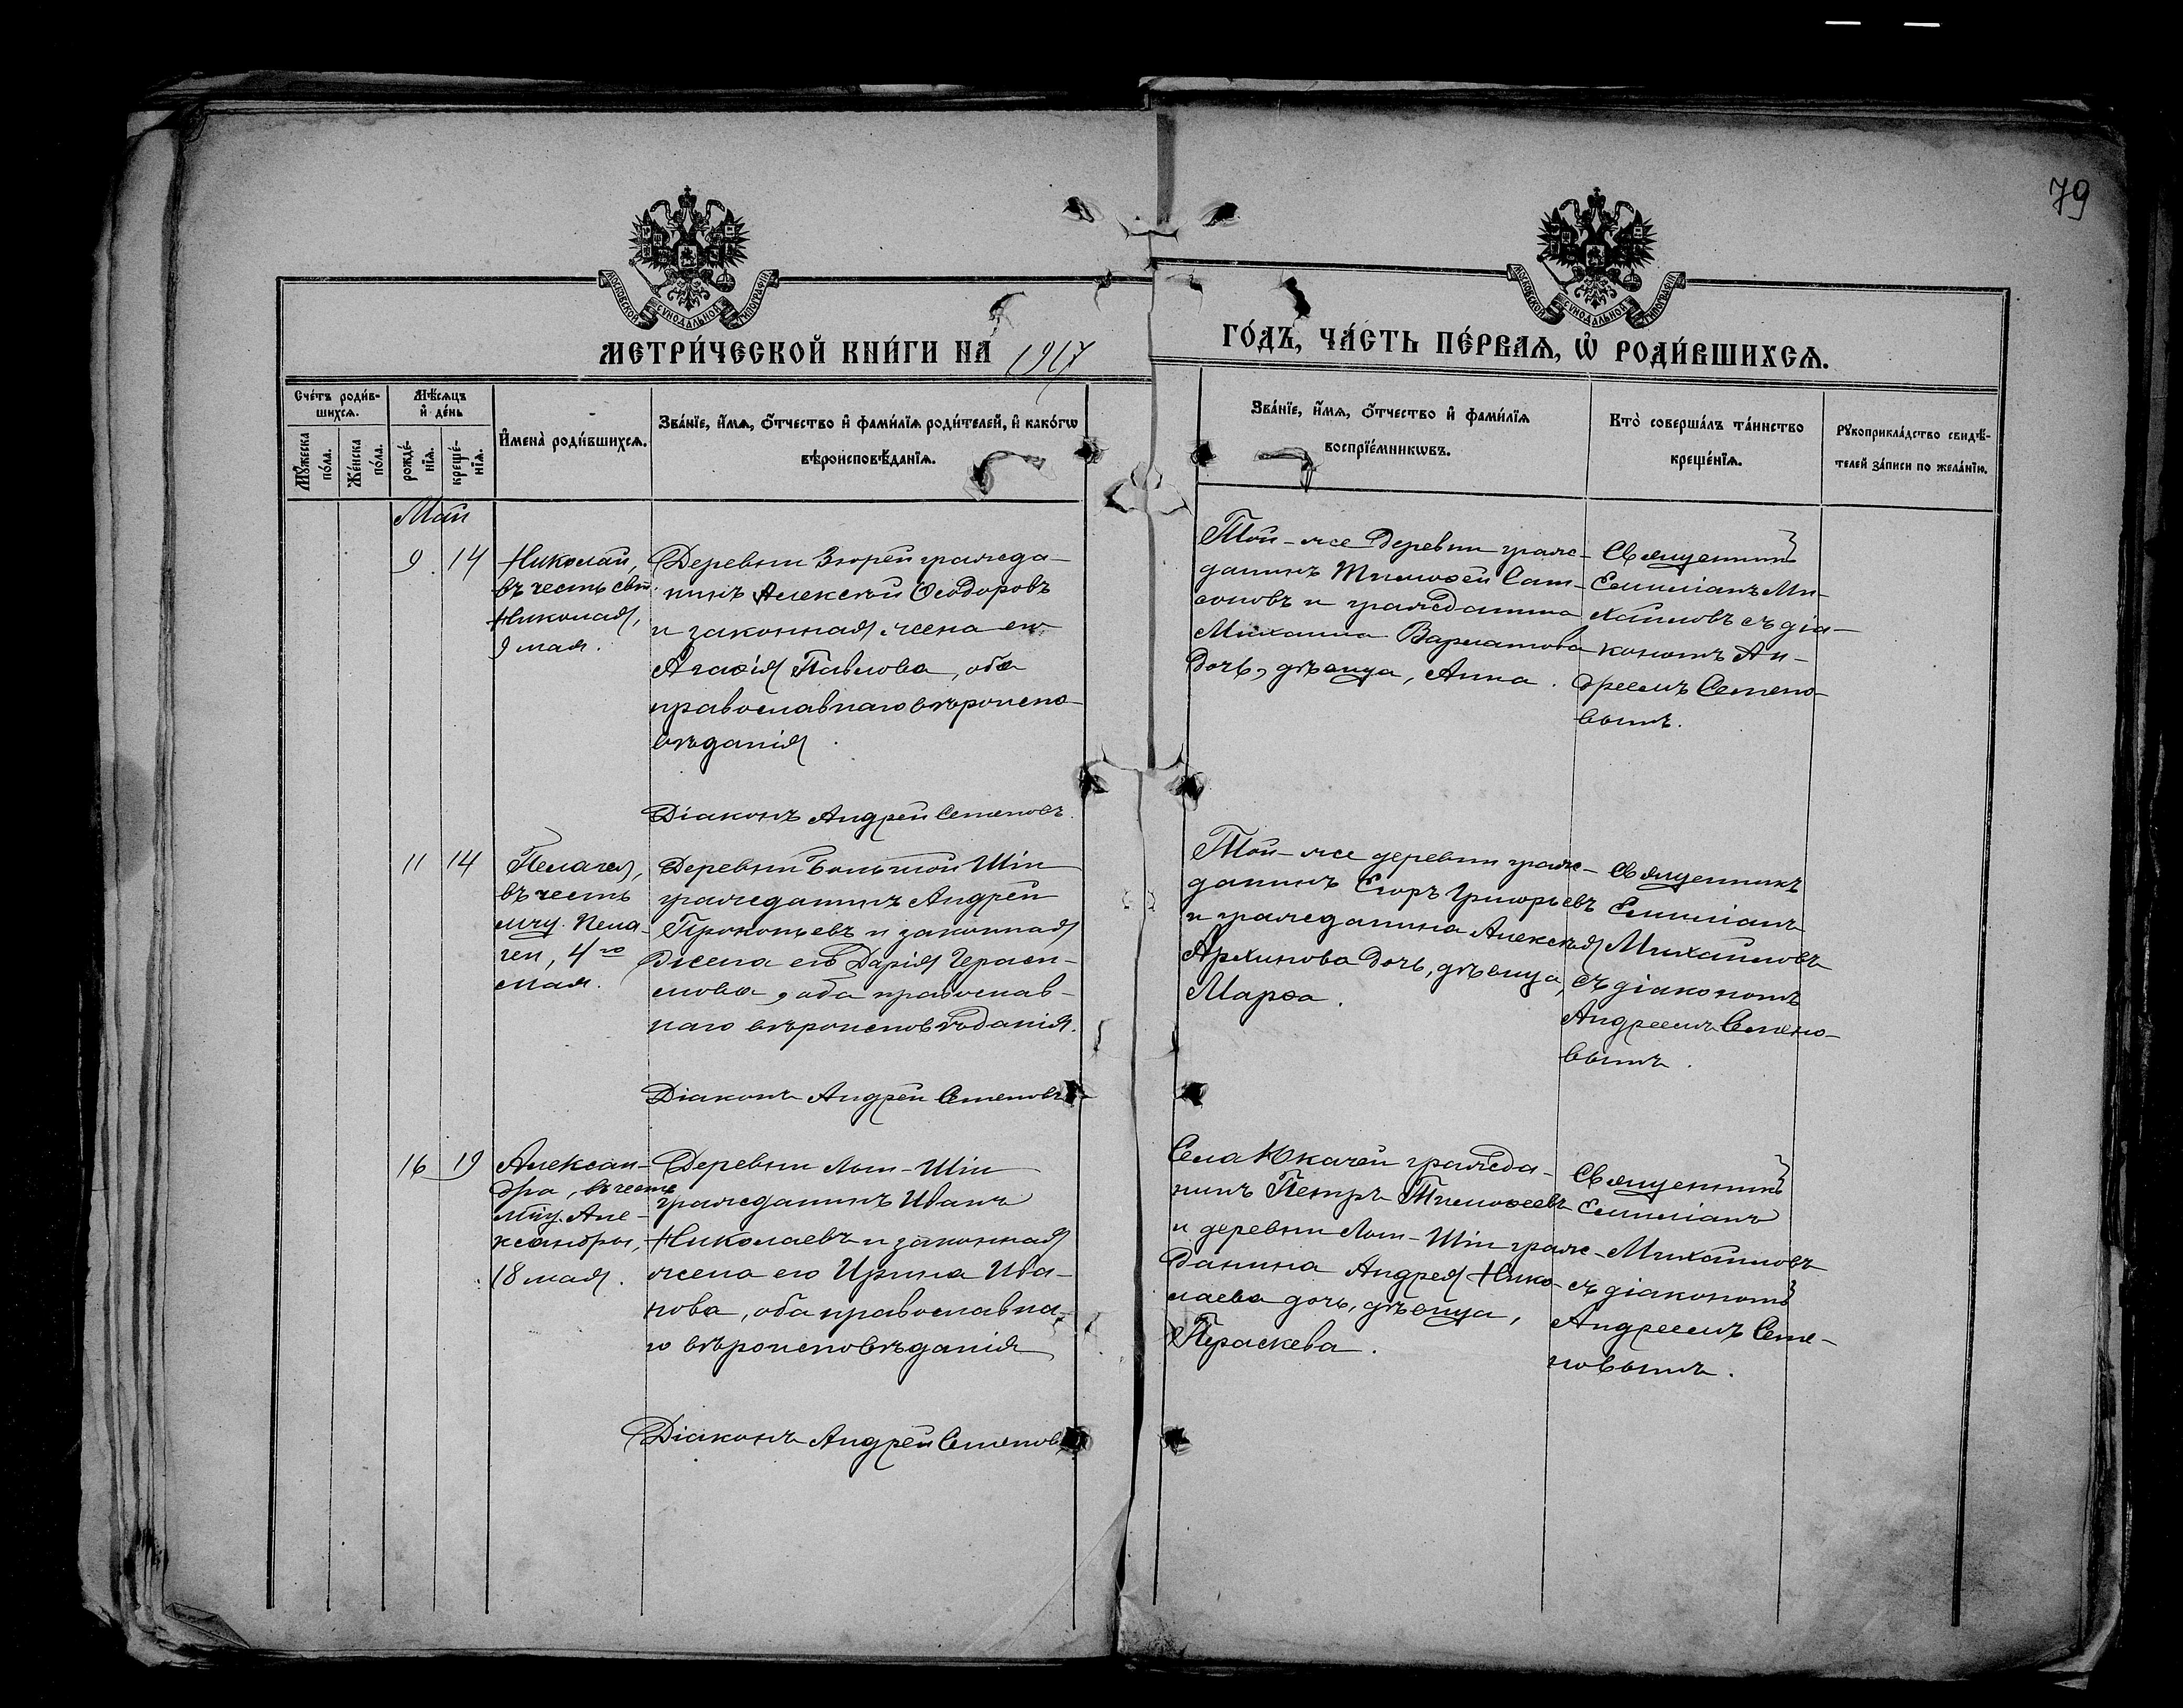 79
МОСКОВСКОЙ СУНОДАЛЬНОЙ ТИПОГРАФІИ
МОСКОВСКОЙ СУНОДАЛЬНОЙ ТИПОГРАФІИ
МЕТРИ́ЧЕСКОЙ КНИ́ГИ НА 1917
ГО́ДЪ, ЧА́СТЬ ПЕ́РВАѦ, Ѡ҆ РОДИ́ВШИХСѦ.
Сче́тъ роди́в-
шихсѧ.
Мꙋ́жеска
по́ла.
Же́нска
по́ла.
Мѣ́сѧцъ
и҆ де́нь
рожде́-
нїѧ.
креще́-
нїѧ.
И҆мена̀ роди́вшихсѧ.
Зва́нїе, и҆́мѧ, ѻ҆́тчество и҆ фами́лїѧ роди́телей, и҆ како́гѡ
вѣроисповѣ́данїѧ.
Зва́нїе, и҆́мѧ, ѻ҆́тчество и҆ фами́лїѧ
воспрїе́мникѡвъ.
Кто̀ соверша́лъ та́инство
креще́нїѧ.
Рꙋкоприкла́дство свидѣ́-
телей за́писи по жела́нїю.
Май
9 14
Николай,
въ честь свт.
Николая,
9 мая.
Деревни Зюрей гражда-
нинъ Алексѣй Ѳеодоровъ
и законная жена его
Агаѳія Павлова, оба
православнаго вѣроиспо-
вѣданія.
Діаконъ Андрей Семеновъ.
Той-же деревни граж-
данинъ Тимоѳей Сам-
соновъ и гражданина
Михаила Варламова
дочь, дѣвица, Анна.
Священникъ
Емиліанъ Ми-
хайловъ съ діа-
кономъ Ан-
дреемъ Семено-
вымъ.
11 14
Пелагея,
въ честь
мчц. Пела-
геи, 4го
мая.
Деревни Большой Шіи
гражданинъ Андрей
Прокопьевъ и законная
жена его Дарія Гераси-
мова, оба православ-
наго вѣроисповѣданія.
Діаконъ Андрей Семеновъ
Той-же деревни граж-
данинъ Егоръ Григорьевъ
и гражданина Алексѣя
Архипова дочь, дѣвица,
Марѳа.
Священникъ
Емиліанъ
Михайловъ
съ діакономъ
Андреемъ Семено-
вымъ.
16 19
Алексан-
дра, въ честь
мчц. Але-
ксандры,
18 мая.
Деревни Лып-Шіи
гражданинъ Иванъ
Николаевъ и законная
жена его Ирина Ива-
нова, оба православна-
го вѣроисповѣданія
Діаконъ Андрей Семеновъ
Села Юкачей гражда-
нинъ Петръ Тимоѳеевъ
и деревни Лып-Шіи граж-
данина Андрея Нико-
лаева дочь, дѣвица,
Параскева.
Священникъ
Емиліанъ
Михайловъ
съ діакономъ
Андреемъ Семе-
новымъ.